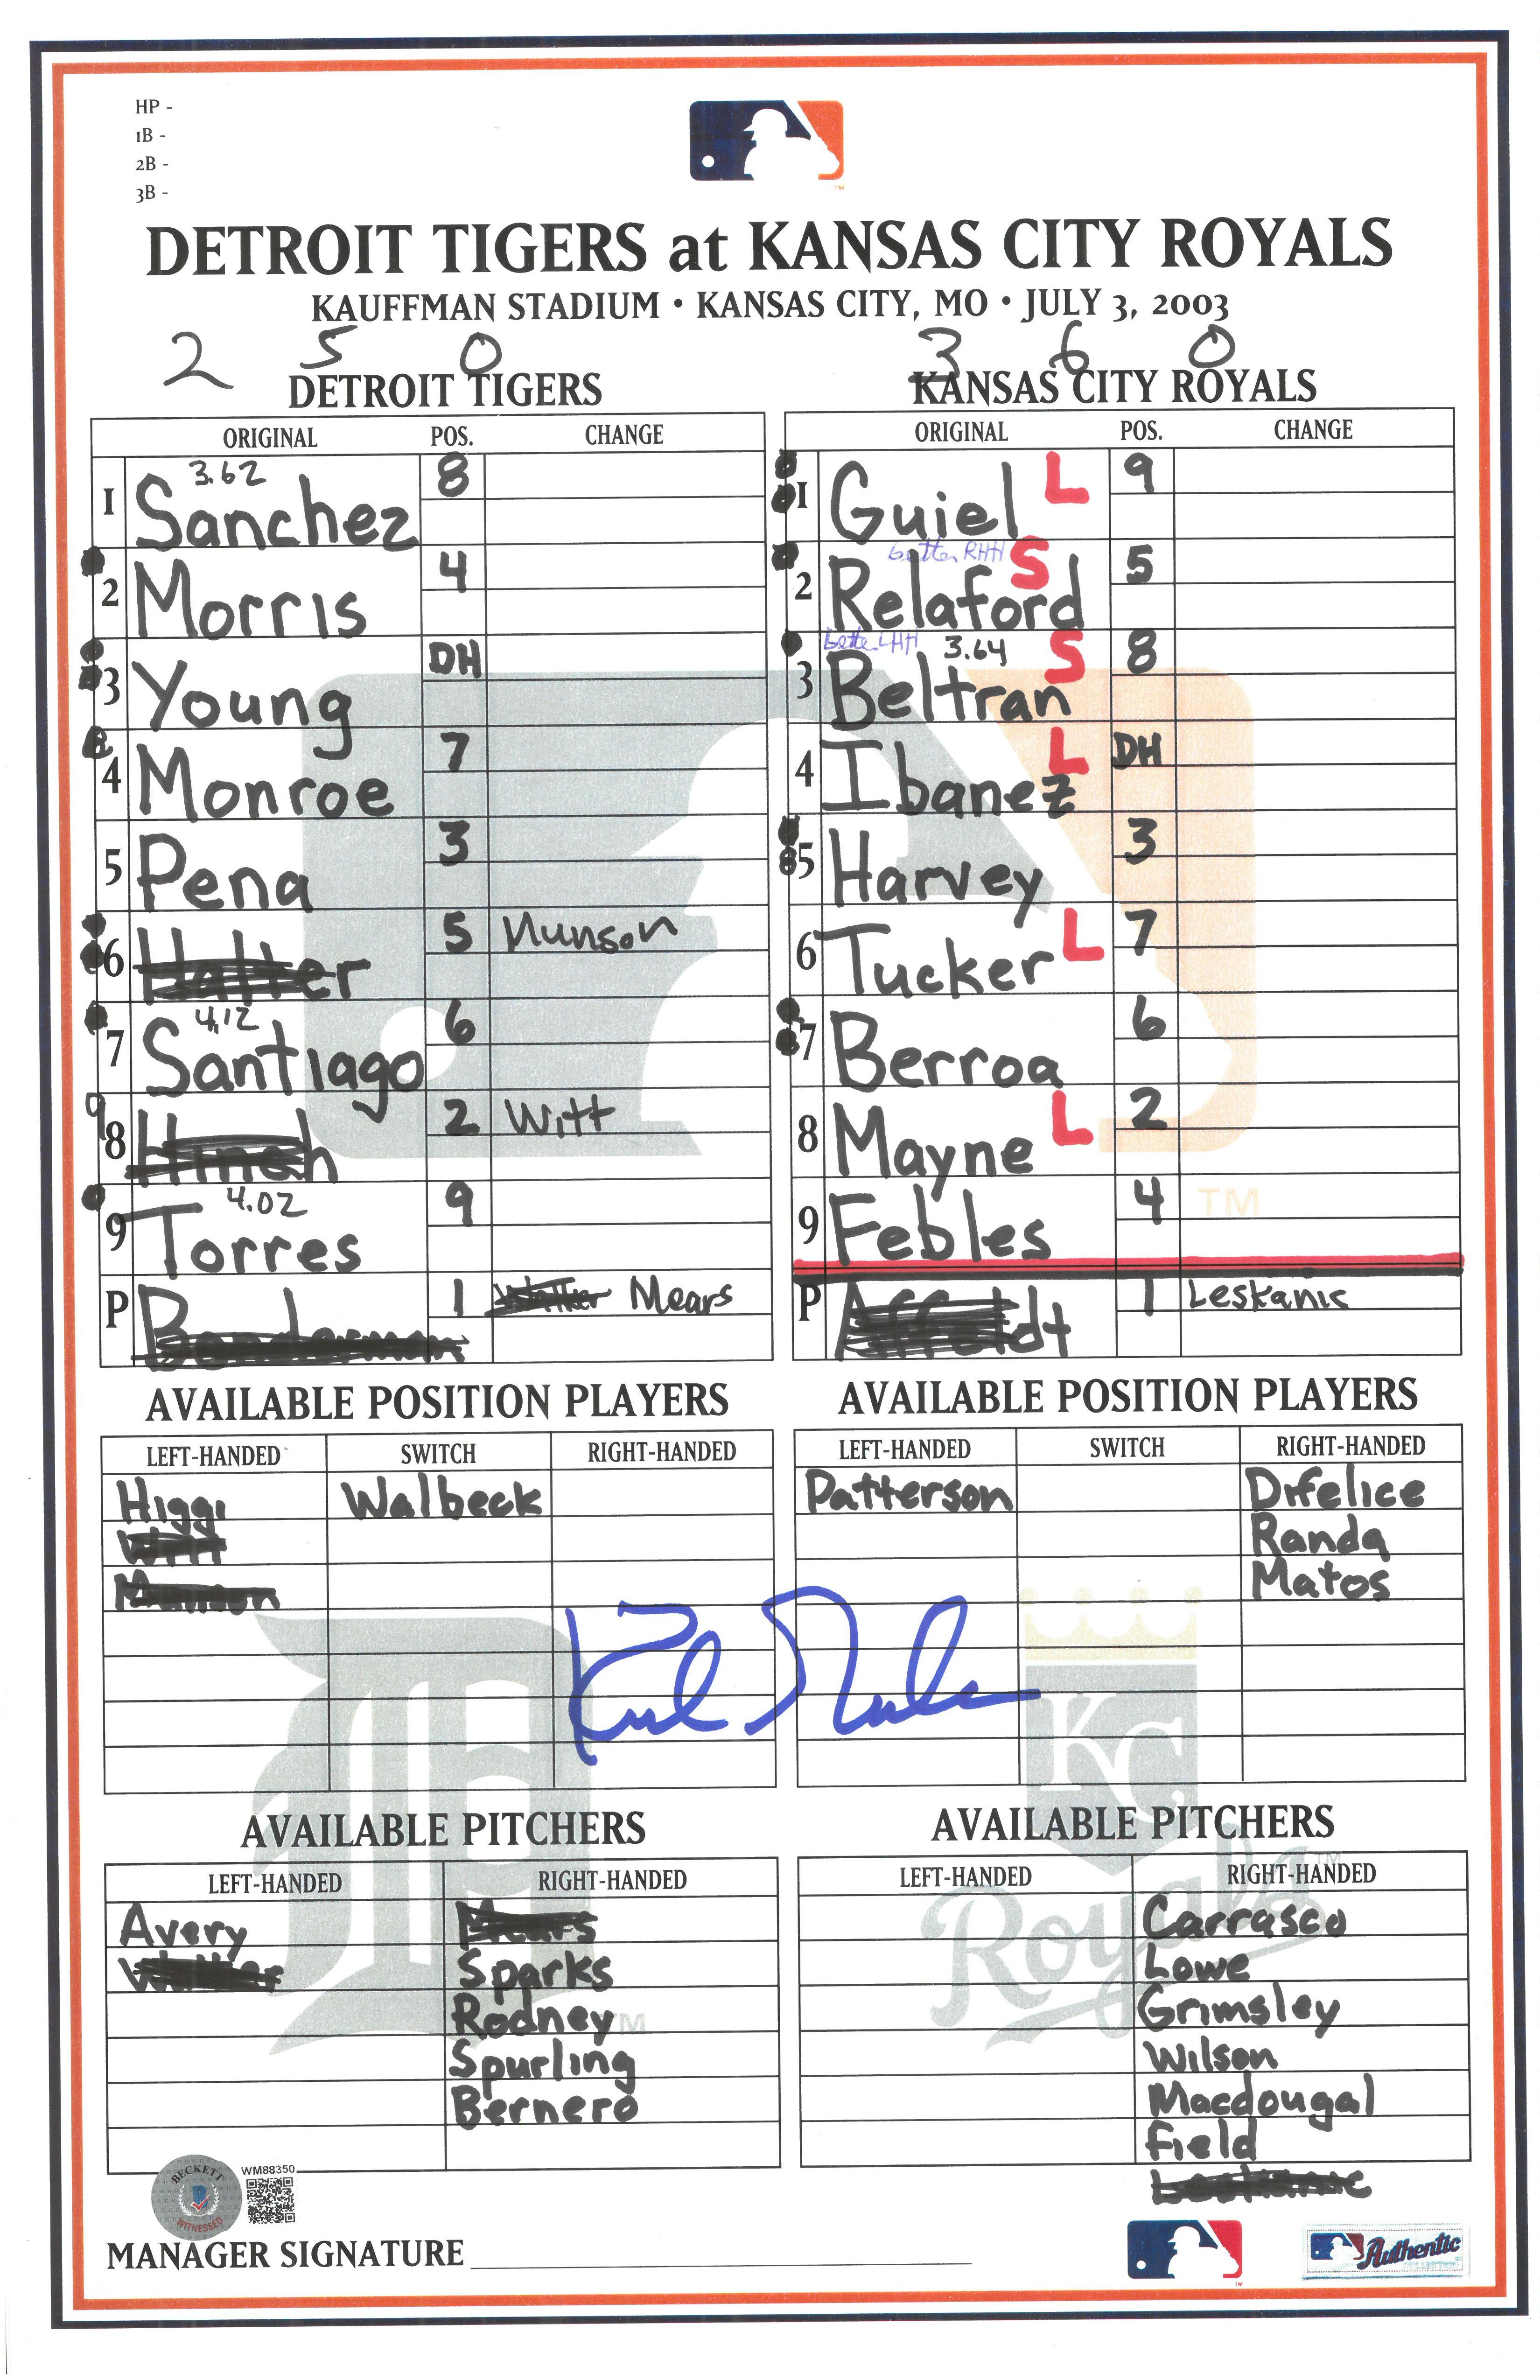 HP -
1B -
2B -
3B -
DETROIT TIGERS at KANSAS CITY ROYALS
KAUFFMAN STADIUM • KANSAS CITY, MO • JULY 3, 2003
2 5 0
DETROIT TIGERS
ORIGINAL POS. CHANGE
3.62
1 Sanchez 8
2 Morris 4
3 Young DH
4 Monroe 7
5 Pena 3
6 Halter 5 Munson
4.12
7 Santiago 6
8 Hinch 2 Witt
4.02
9 Torres 9
P Bonderman 1 Walker Mears
3 6 0
KANSAS CITY ROYALS
ORIGINAL POS. CHANGE
1 Guiel L 9
better RHH
2 Relaford S 5
better LHH 3.64
3 Beltran S 8
4 Ibanez L DH
5 Harvey 3
6 Tucker L 7
7 Berroa 6
8 Mayne L 2
9 Febles 4
TM
P Affeldt 1 Leskanic
AVAILABLE POSITION PLAYERS
LEFT-HANDED SWITCH RIGHT-HANDED
Higgi Walbeck
Witt
Munson
AVAILABLE POSITION PLAYERS
LEFT-HANDED SWITCH RIGHT-HANDED
Patterson Difelice
Randa
Matos
KC
AVAILABLE PITCHERS
LEFT-HANDED RIGHT-HANDED
Avery Mears
Walker Sparks
Rodney
Spurling
Bernero
TM
AVAILABLE PITCHERS
LEFT-HANDED RIGHT-HANDED
Carrasco
Lowe
Grimsley
Wilson
Macdougal
Field
Leskanic
Royals
TM
BECKETT
WITNESSED
WM88350
MANAGER SIGNATURE
Authentic